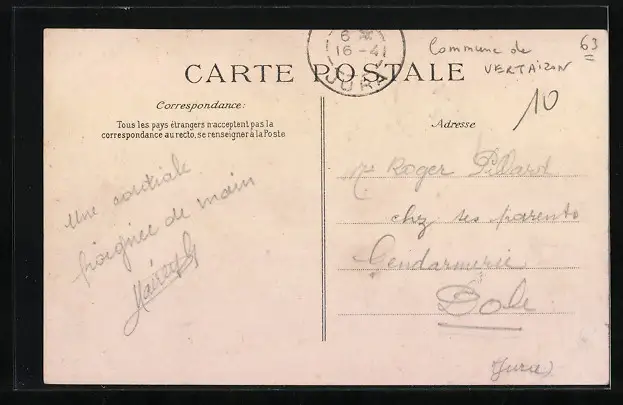 6
16 -41
JURA
Commune de
VERTAIZON
63
10
CARTE POSTALE
Correspondance:
Tous les pays étrangers n'acceptent pas la
correspondance au recto, se renseigner à la Poste
Adresse
Une cordiale
poignée de main
Mr Roger Pillard
chz ses parents
Gendarmerie
Dole
(Jura)